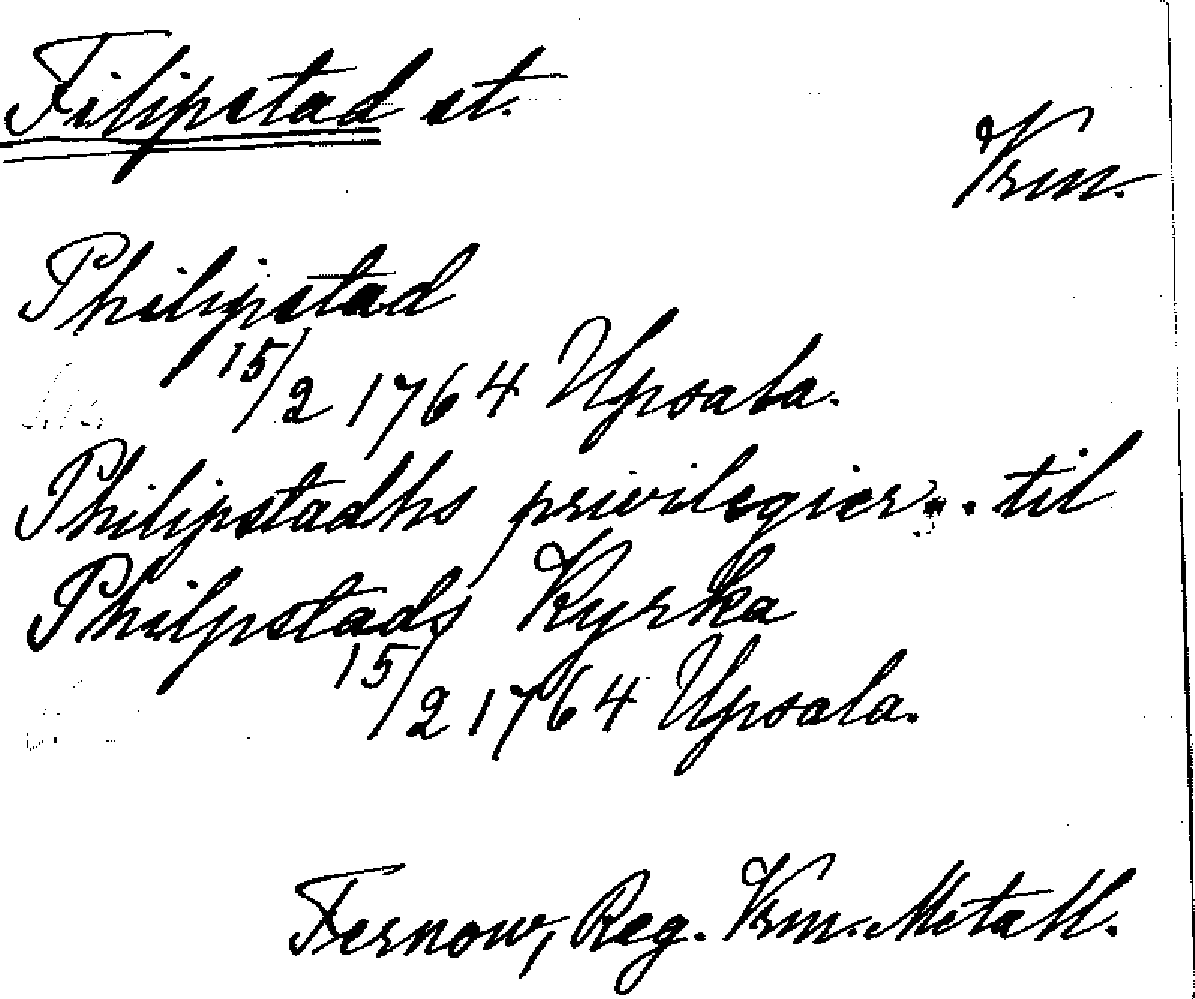 Filipstad st.
Vrm.
Philipstad
15/2 1764 Upsala.
Philipstadhs privilegier... til
Philpstads Kyrka
15/2 1764 Upsala.
Fernow, Reg. Vrm. Metall.